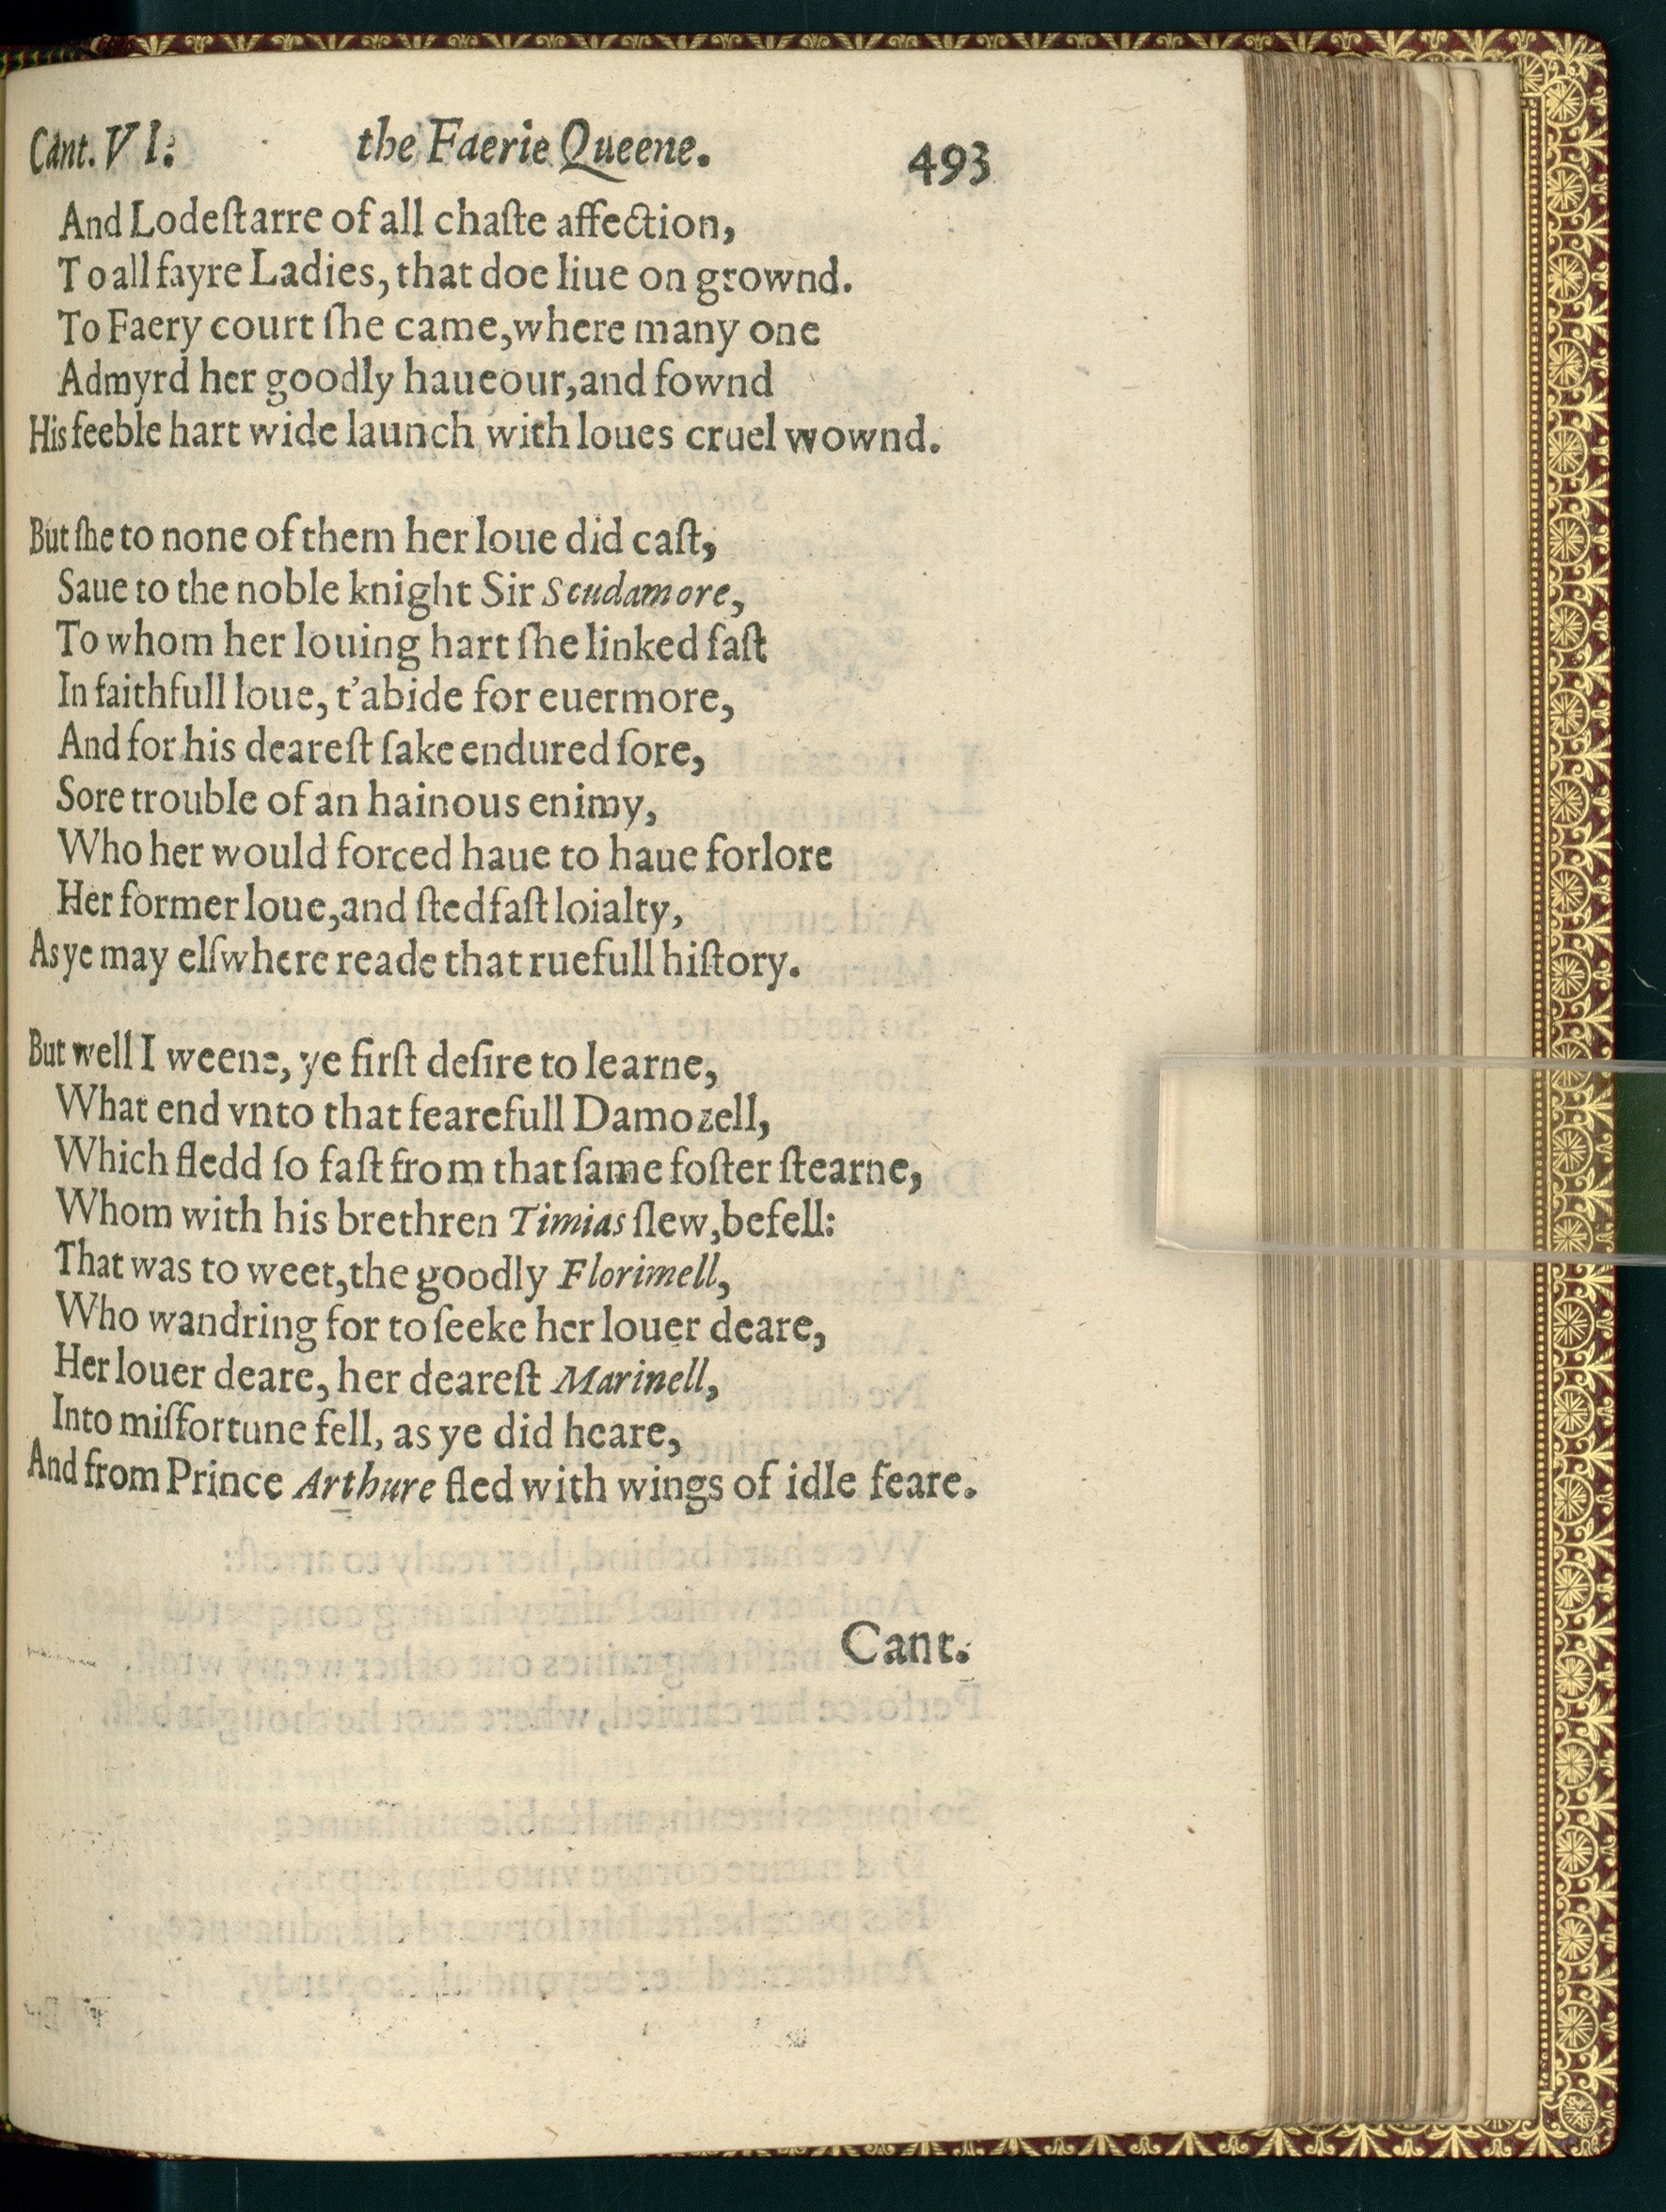 Cant. VI: the Faerie Queene. 493
And Lodeſtarre of all chaſte affection,
To all fayre Ladies, that doe liue on grownd.
To Faery court ſhe came,where many one
Admyrd her goodly haueour,and fownd
His feeble hart wide launch with loues cruel wownd.
But ſhe to none of them her loue did caſt,
Saue to the noble knight Sir Scudamore,
To whom her louing hart ſhe linked faſt
In faithfull loue, t'abide for euermore,
And for his deareſt ſake endured ſore,
Sore trouble of an hainous enimy,
Who her would forced haue to haue forlore
Her former loue,and ſtedfaſt loialty,
As ye may elſwhere reade that ruefull hiſtory.
But well I weene, ye firſt deſire to learne,
What end vnto that fearefull Damozell,
Which fledd ſo faſt from that ſame foſter ſtearne,
Whom with his brethren Timias ſlew,befell:
That was to weet,the goodly Florimell,
Who wandring for to ſeeke her louer deare,
Her louer deare, her deareſt Marinell,
Into miſfortune fell, as ye did heare,
And from Prince Arthure fled with wings of idle feare.
Cant.